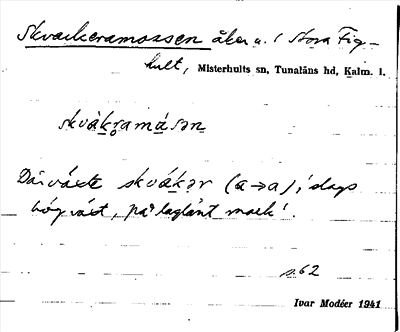 Skvackeramossen åker u. i Stora Fig-
hult, Misterhults sn, Tunaläns hd, Kalm. l.
skvàkramásən
Där växte skvákər (a→a), 'slags
högväxt, på lagländt mark'.
s. 62
Ivar Modéer 1941